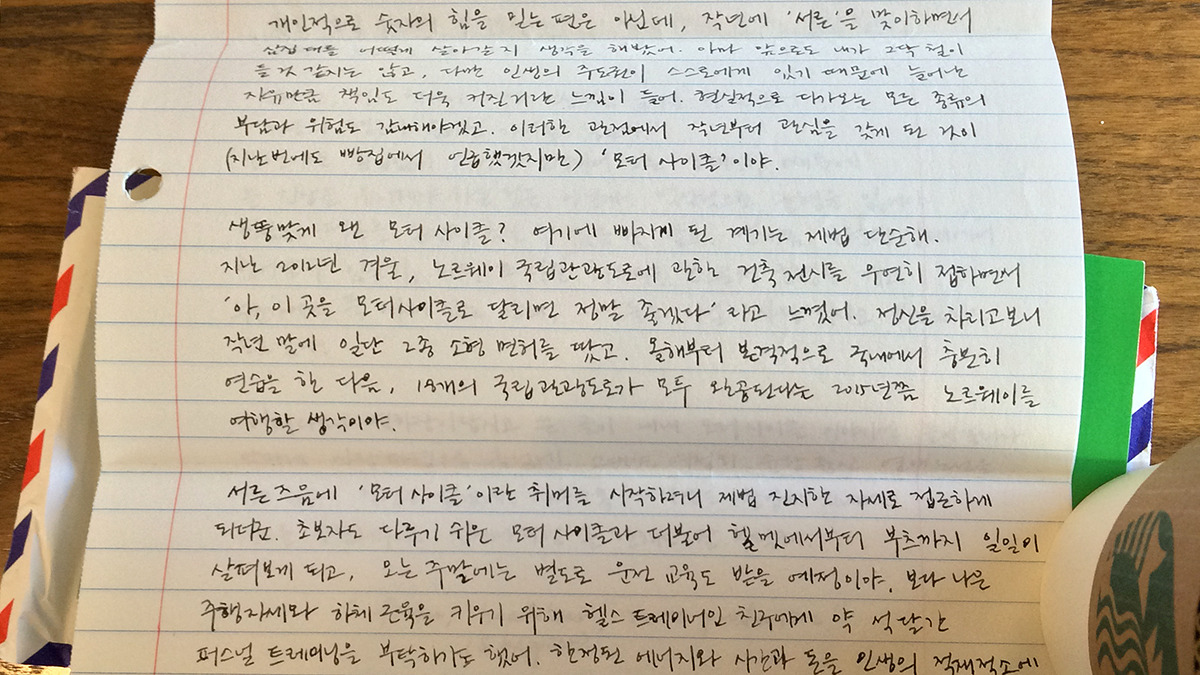 개인적으로 숫자의 힘을 믿는 편은 아닌데, 작년에 '서른'을 맞이하면서
삼십 대를 어떻게 살아갈 지 생각을 해봤어. 아마 앞으로도 내가 그닥 철이
들 것 같지는 않고, 다만 인생의 주도권이 스스로에게 있기 때문에 늘어난
자유만큼 책임도 더욱 커진거란 느낌이 들어. 현실적으로 다가오는 모든 종류의
부담과 위험도 감내해야겠고. 이러한 관점에서 작년부터 관심을 갖게 된 것이
(지난번에도 빵집에서 언급했겠지만) '모터 사이클'이야.
생뚱맞게 왠 모터 사이클? 여기에 빠지게 된 계기는 제법 단순해.
지난 2012년 겨울, 노르웨이 국립관광도로에 관한 건축전시를 우연히 접하면서
'아, 이 곳을 모터사이클로 달리면 정말 좋겠다' 라고 느꼈어. 정신을 차리고보니
작년 말에 일단 2종 소형 면허를 땄고. 올해부터 본격적으로 국내에서 충분히
연습을 한 다음, 18개의 국립관광도로가 모두 완공된다는 2015년쯤 노르웨이를
여행할 생각이야.
서른 즈음에 '모터 사이클'이란 취미를 시작하려니 제법 진지한 자세로 접근하게
되더군. 초보자도 다루기 쉬운 모터 사이클과 더불어 헬멧에서부터 부츠까지 일일이
살펴보게 되고, 오는 주말에는 별도로 운전 교육도 받을 예정이야. 보다 나은
주행자세와 하체 근육을 키우기 위해 헬스 트레이너인 친구에게 약 석달간
퍼스널 트레이닝을 부탁하기도 했어. 한정된 에너지와 시간과 돈을 인생의 적재적소에